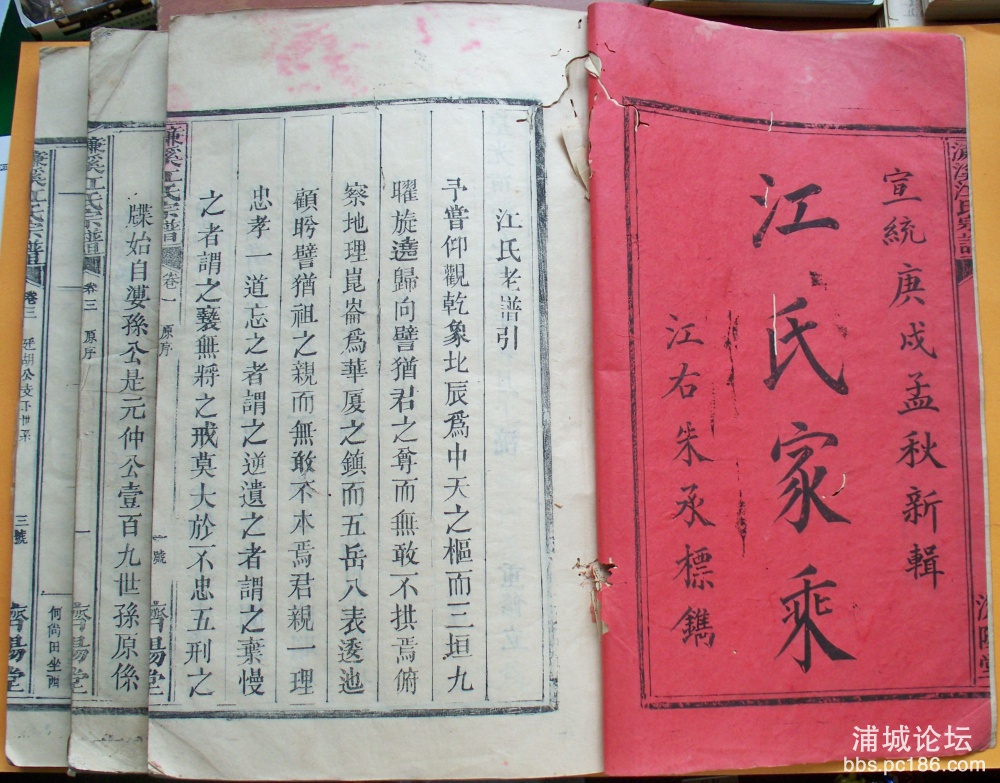 宣統庚戌孟秋新輯
江氏家乘
江右朱承標鐫
江氏老譜引
予嘗仰觀乾象北辰爲中天之樞而三垣九
曜旋遶歸向譬猶君之尊而無敢不拱焉俯
察地理崑崙爲華厦之鎮而五岳八表逶迆
顧盻譬猶祖之親而無敢不本焉君親一理
忠孝一道忘之者謂之逆遺之者謂之棄慢
之者謂之褻無將之戒莫大於不忠五刑之
濂溪江氏宗譜 卷一 原序 一號 濟陽堂
牒始自溇孫公是元仲公壹百九世孫原係
濂溪江氏宗譜 卷三 原序 濟陽堂
何尚田坐酉
濂溪江氏宗譜 卷三 三號 濟陽堂
浦城论坛
bbs.pc186.com